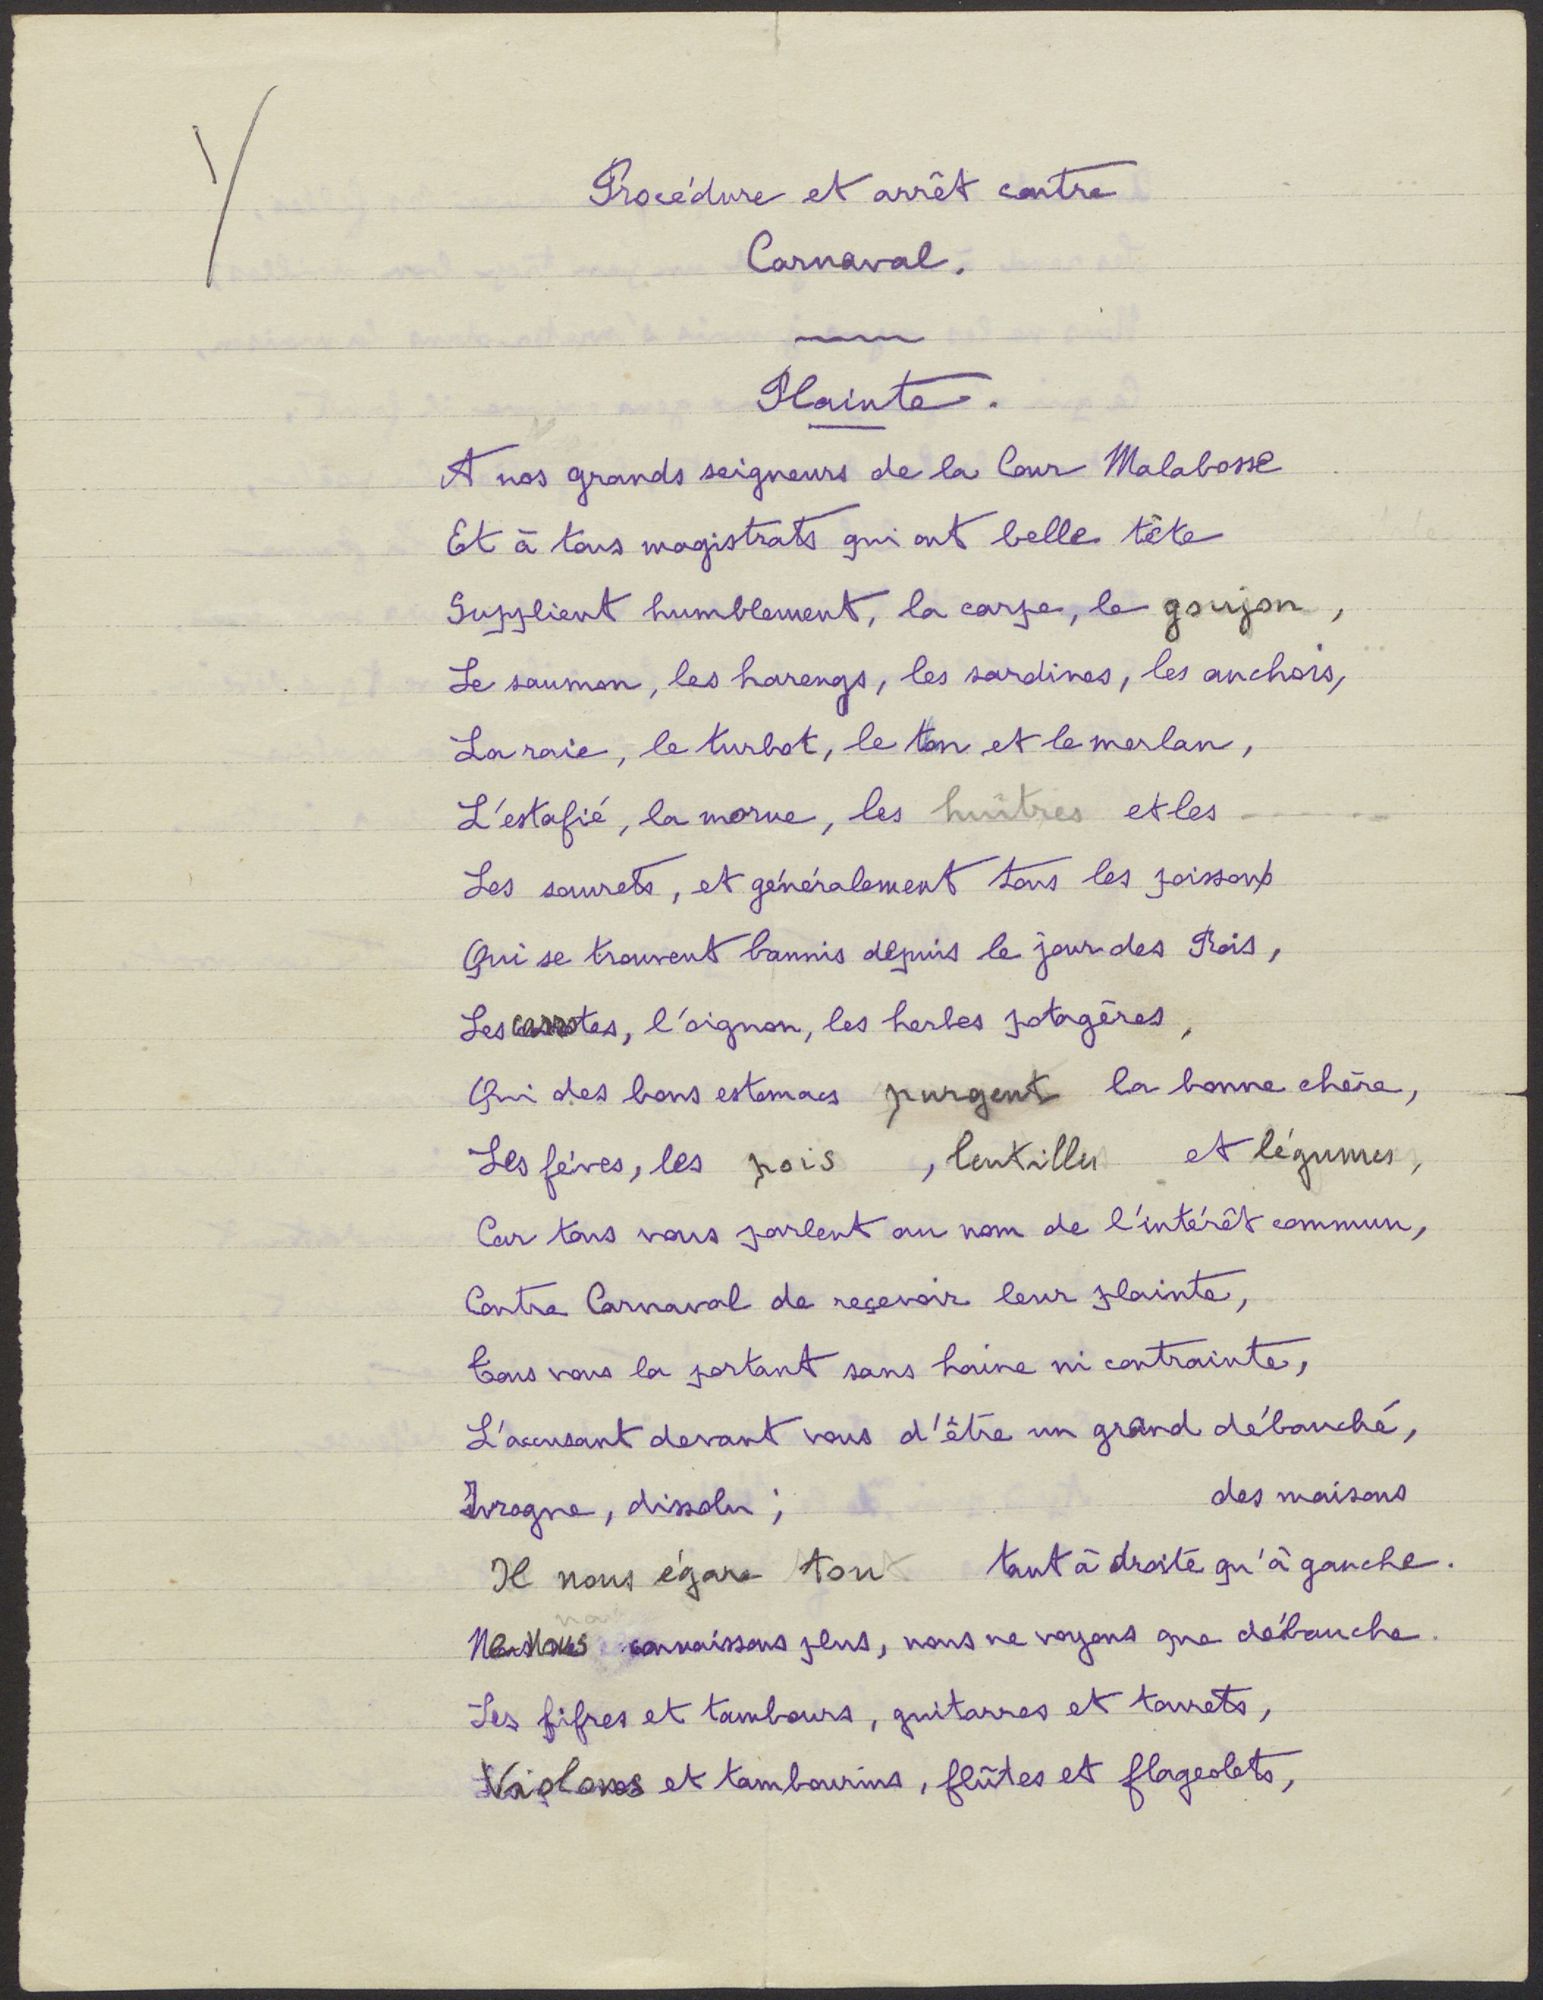 Procédure et arrêt contre
Carnaval.
Plainte.
A nos grands seigneurs de la Cour Malabosse
Et à tous magistrats qui ont belle tête
Supplient humblement, la carpe, le goujon,
Le saumon, les harengs, les sardines, les anchois,
La raie, le turbot, le ton et le merlan,
L'estafié, la morue, les huîtres et les ------
Les saurets, et généralement tous les poissons
Qui se trouvent bannis depuis le jour des Rois,
Les carottes, l'oignon, les herbes potagères,
Qui des bons estomacs purgent la bonne chère,
Les fèves, les pois, lentilles et légumes,
Car tous vous parlent au nom de l'intérêt commun,
Contre Carnaval de reçevoir leur plainte,
Tous vous la portant sans haine ni contrainte,
L'accusant devant vous d'être un grand débauché,
Ivrogne, dissolu; des maisons
Il nous égare tout tant à droite qu'à gauche.
Ne nous connaissons plus, nous ne voyons que débauche.
Les fifres et tambours, guitarres et tourets,
Violons et tambourins, flûtes et flageolets,